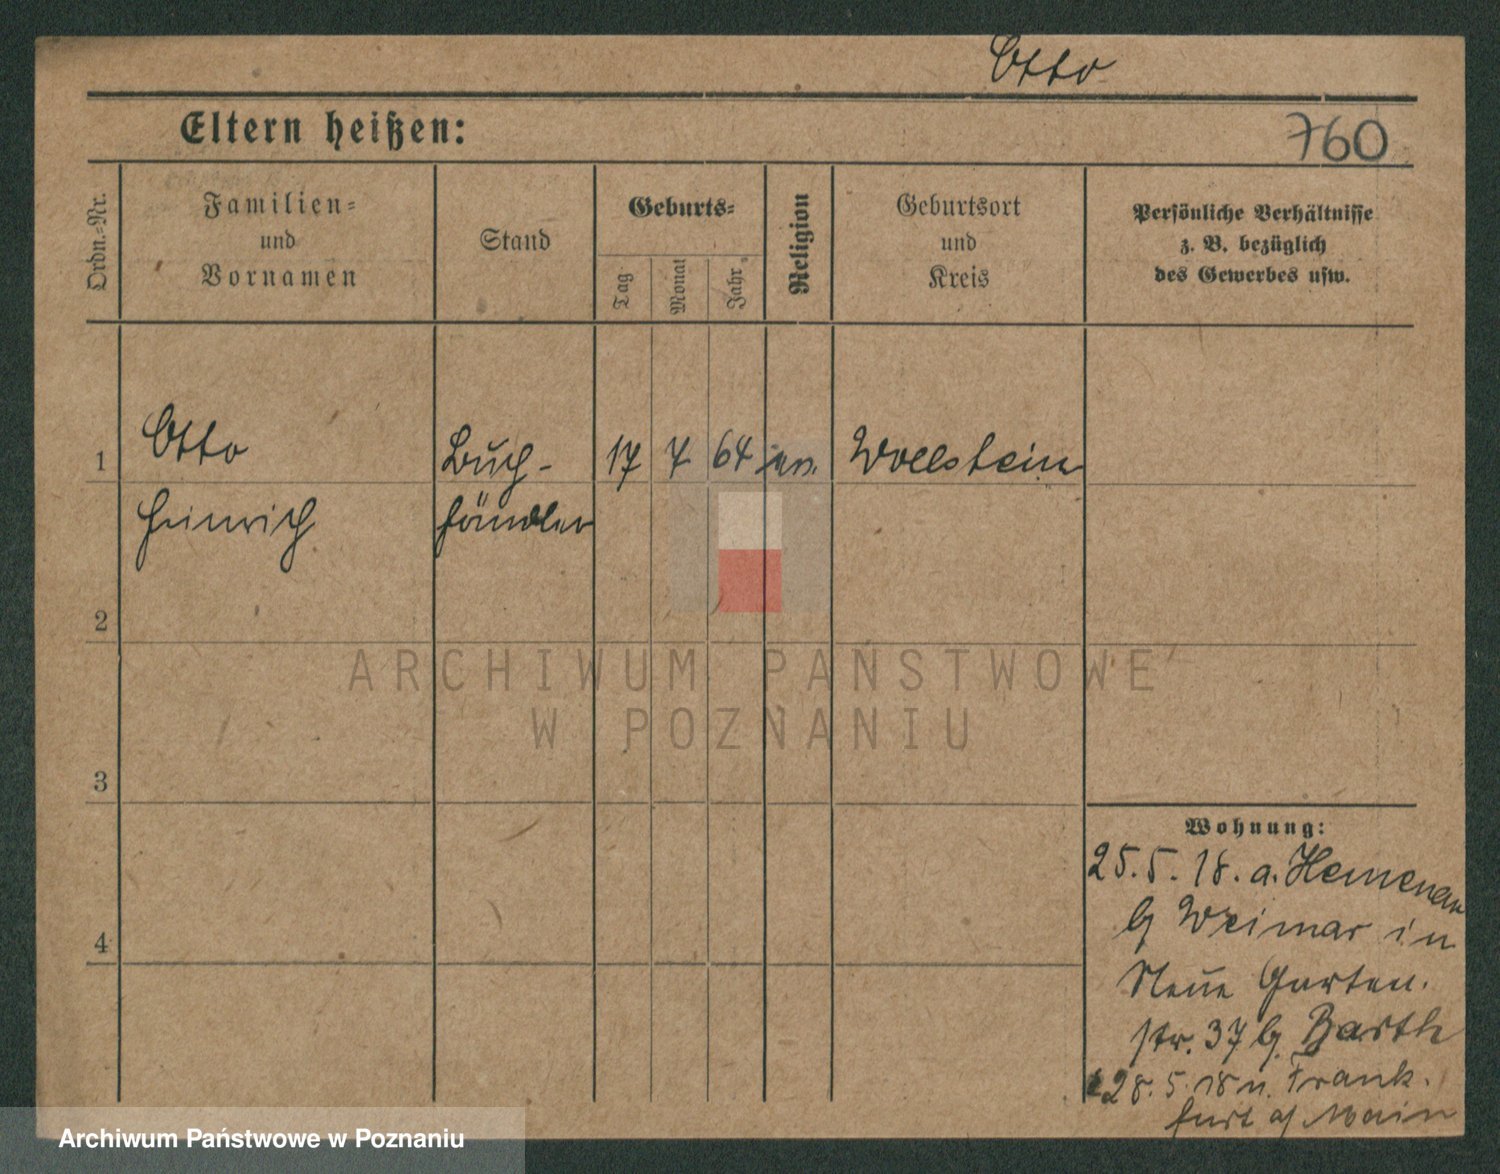 Otto
Eltern heißen:
760
Ordn.-Nr.
Familien-
und
Vornamen
Stand
Geburts-
Tag
Monat
Jahr
Religion
Geburtsort
und
Kreis
Persönliche Verhältnisse
z. B. bezüglich
des Gewerbes usw.
1
Otto
Buch-
17
7
64
ev.
Wollstein
Heinrich
händler
2
ARCHIWUM PAŃSTWOWE
W POZNANIU
3
Wohnung:
25.5.18. a.
b/ Weimar in
4
Neue Garten.
str. 37 b/ Barth
28.5.18 n. Frank.
furt a/ Main
Archiwum Państwowe w Poznaniu